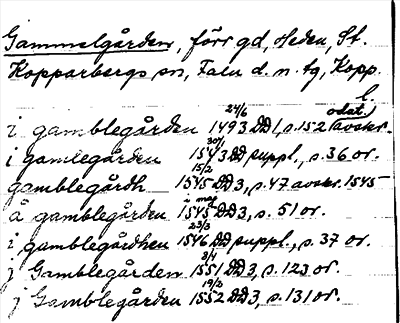 Gammelgården, förr gd, Heden, St.
Kopparbergs sn, Falu d. n. tg, Kopp.
l.
i gamblegården 24/6 1493 DD 1, s. 152 (odat.) avskr.
i gamlegården 30/1 1543 DD suppl., s. 36 or.
gamblegårdh 15/2 1545 DD 3, s. 47 avskr. 1545
å gamblegården i maj 1545 DD 3, s. 51 or.
i gamblegårdhen 23/3 1546 DD suppl., s. 37 or.
j Gamblegården 8/4 1551 DD 3, s. 123 or.
j Gamblegården 19/2 1552 DD 3, s. 131 or.